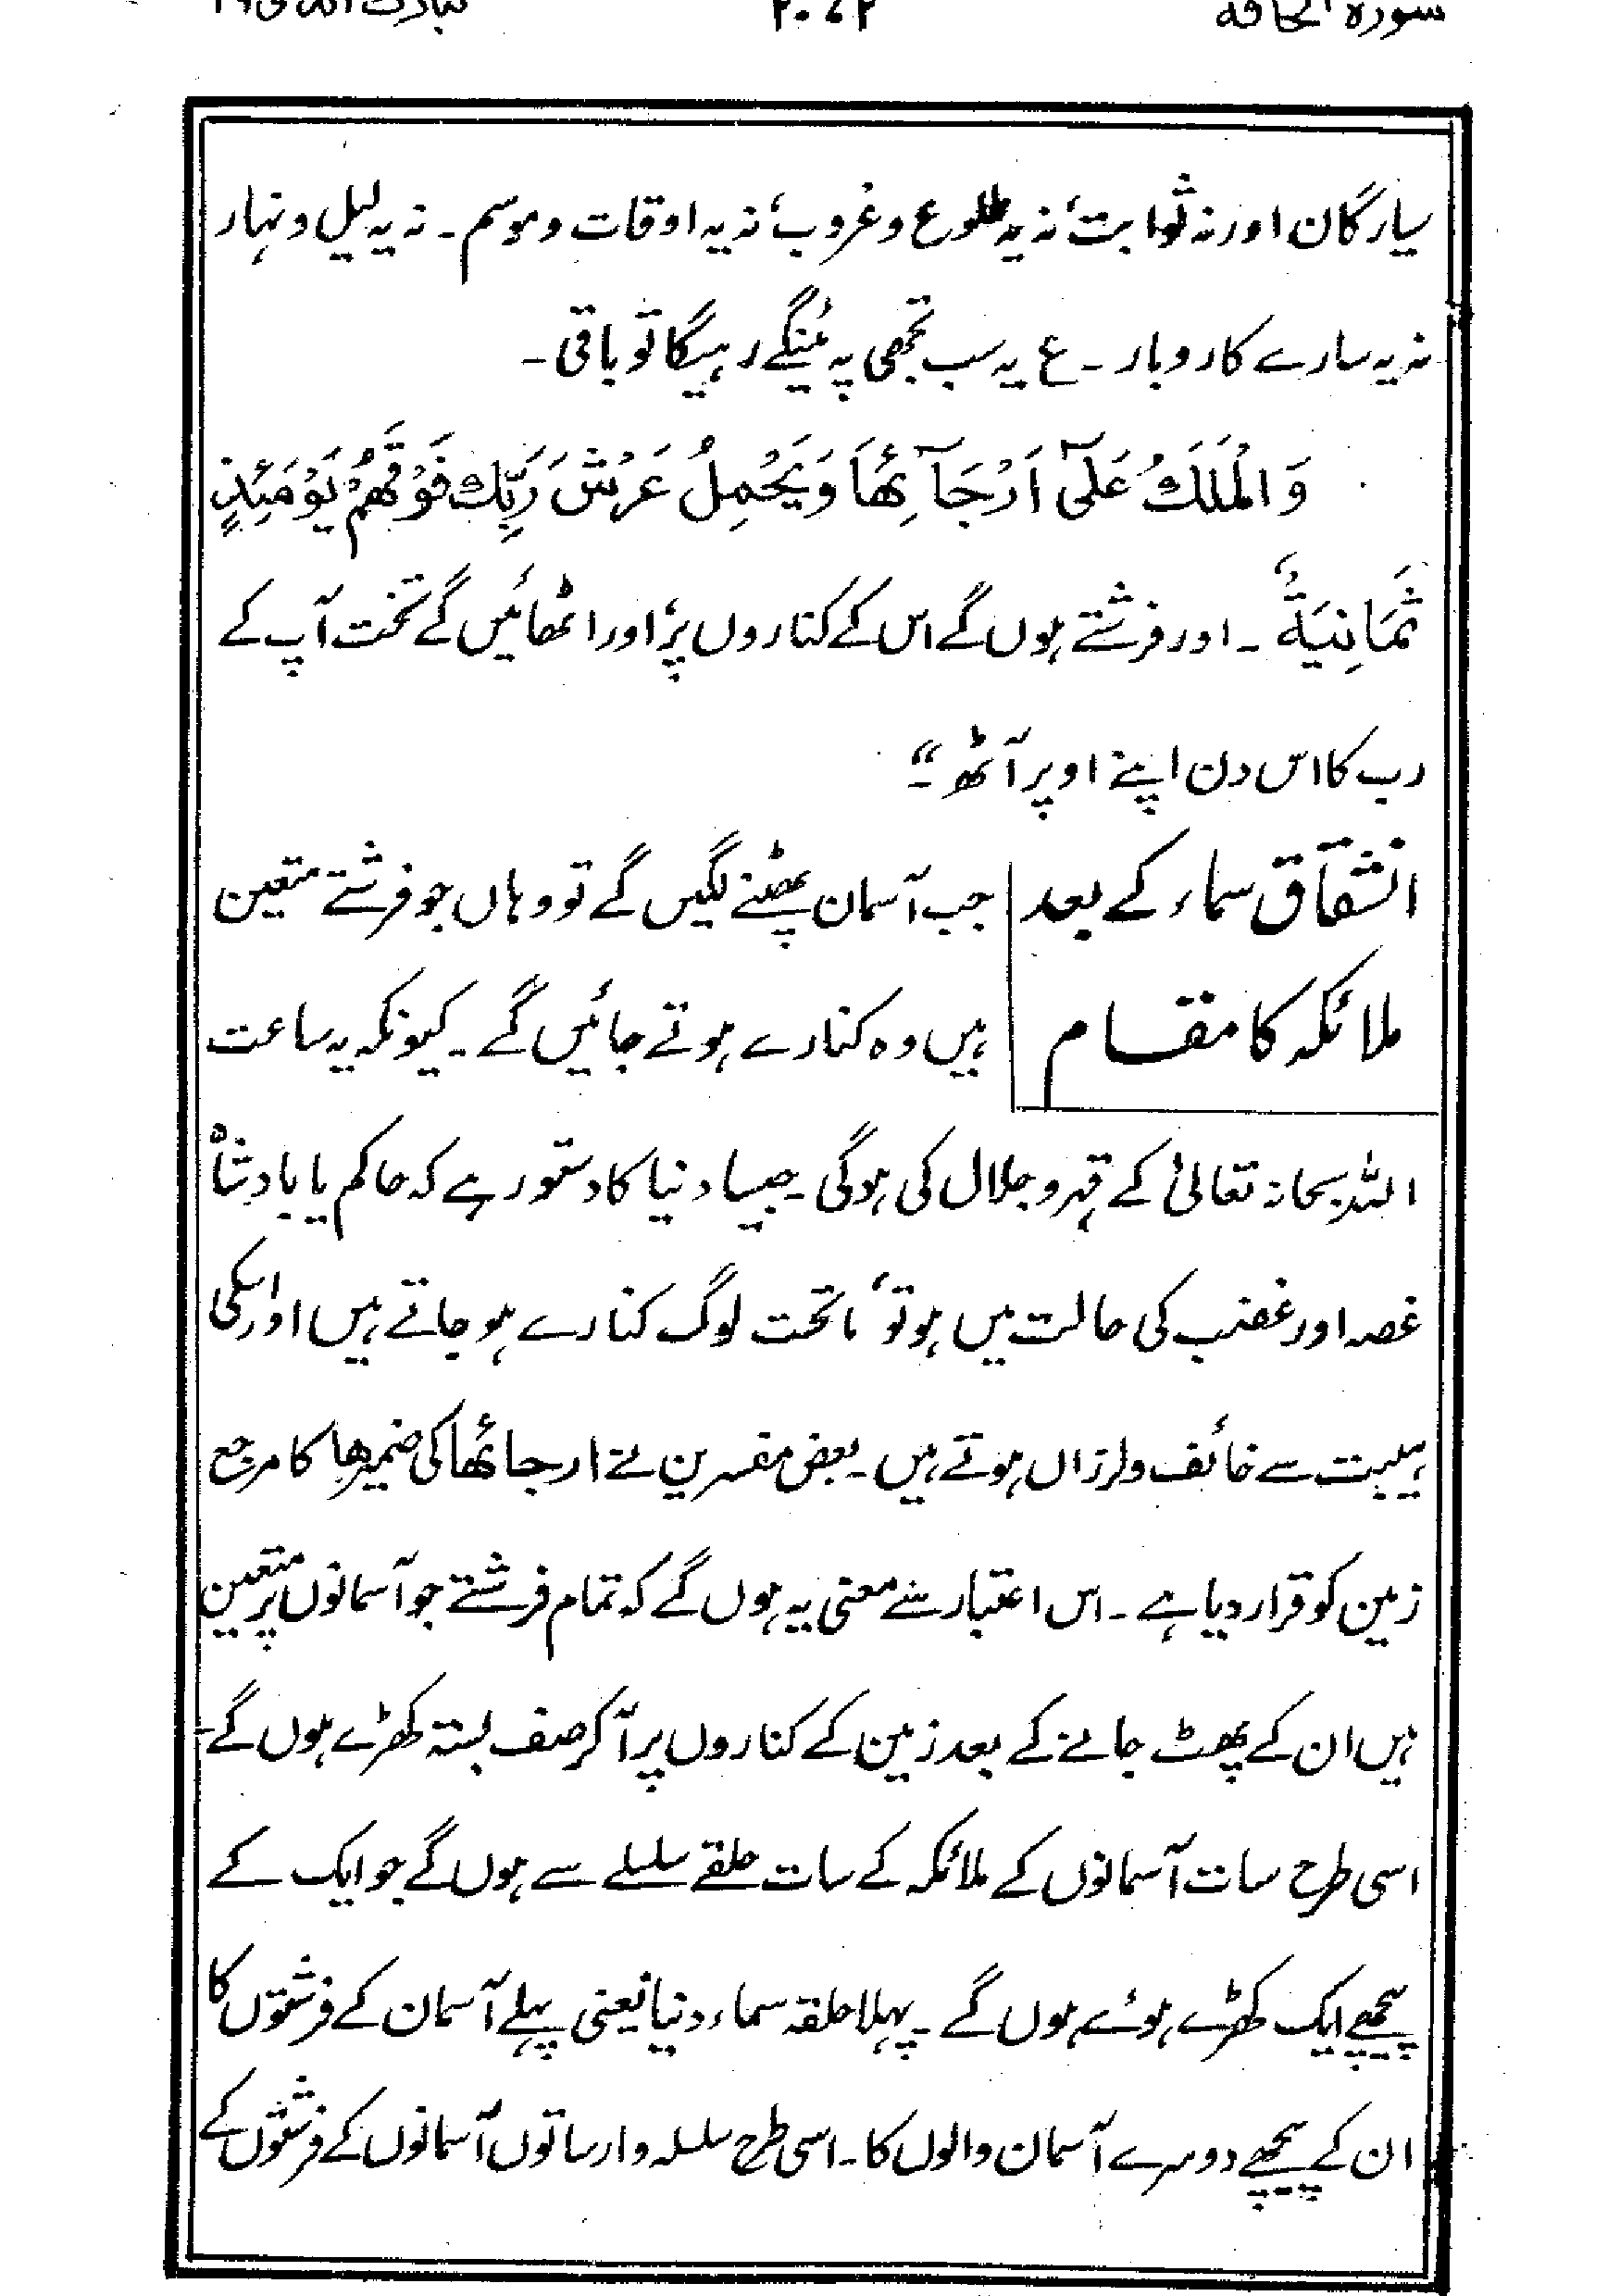 سورہ الحاقہ ۲۰۷۲ تبارک الذی ۲۹
سیارگان اور نہ ثوابت، نہ یہ طلوع و غروب، نہ یہ اوقات و موسم ۔ نہ یہ لیل و نہار
نہ یہ سارے کاروبار ۔ ع یہ سب تجھی پہ رہیگا تو باقی ۔
وَالْمَلَكُ عَلٰٓى اَرْجَآئِهَا وَيَحْمِلُ عَرْشَ رَبِّكَ فَوْقَهُمْ يَوْمَئِذٍ
ثَمَانِيَةٌ ۔ اور فرشتے ہوں گے اس کے کناروں پر، اور اٹھائیں گے تخت آپ کے
رب کا اس دن اپنے اوپر آٹھ ۔"
انشقاق سماء کے بعد جب آسمان پھٹنے لگیں گے تو وہاں جو فرشتے متعین
ملائکہ کا مقام ہیں وہ کنارے ہوتے جائیں گے ۔ کیونکہ یہ ساعت
اللہ سبحانہ تعالیٰ کے قہر و جلال کی ہوگی ۔ جیسا دنیا کا دستور ہے کہ حاکم یا بادشاہ
غصہ اور غضب کی حالت میں ہو تو، ماتحت لوگ کنارے ہو جاتے ہیں اور اسکی
ہیبت سے خائف و لرزاں ہوتے ہیں ۔ بعض مفسرین نے ارجائھا کی ضمیر ھا کا مرجع
زمین کو قرار دیا ہے ۔ اس اعتبار سے معنی یہ ہوں گے کہ تمام فرشتے جو آسمانوں پر متعین
ہیں ان کے پھٹ جانے کے بعد زمین کے کناروں پر آ کر صف بستہ کھڑے ہوں گے ۔
اسی طرح سات آسمانوں کے ملائکہ کے سات حلقے سلسلے سے ہوں گے جو ایک کے
پیچھے ایک کھڑے ہوئے ہوں گے ۔ پہلا حلقہ سماء دنیا یعنی پہلے آسمان کے فرشتوں کا
ان کے پیچھے دوسرے آسمان والوں کا ۔ اسی طرح سلسلہ وار ساتوں آسمانوں کے فرشتوں کے